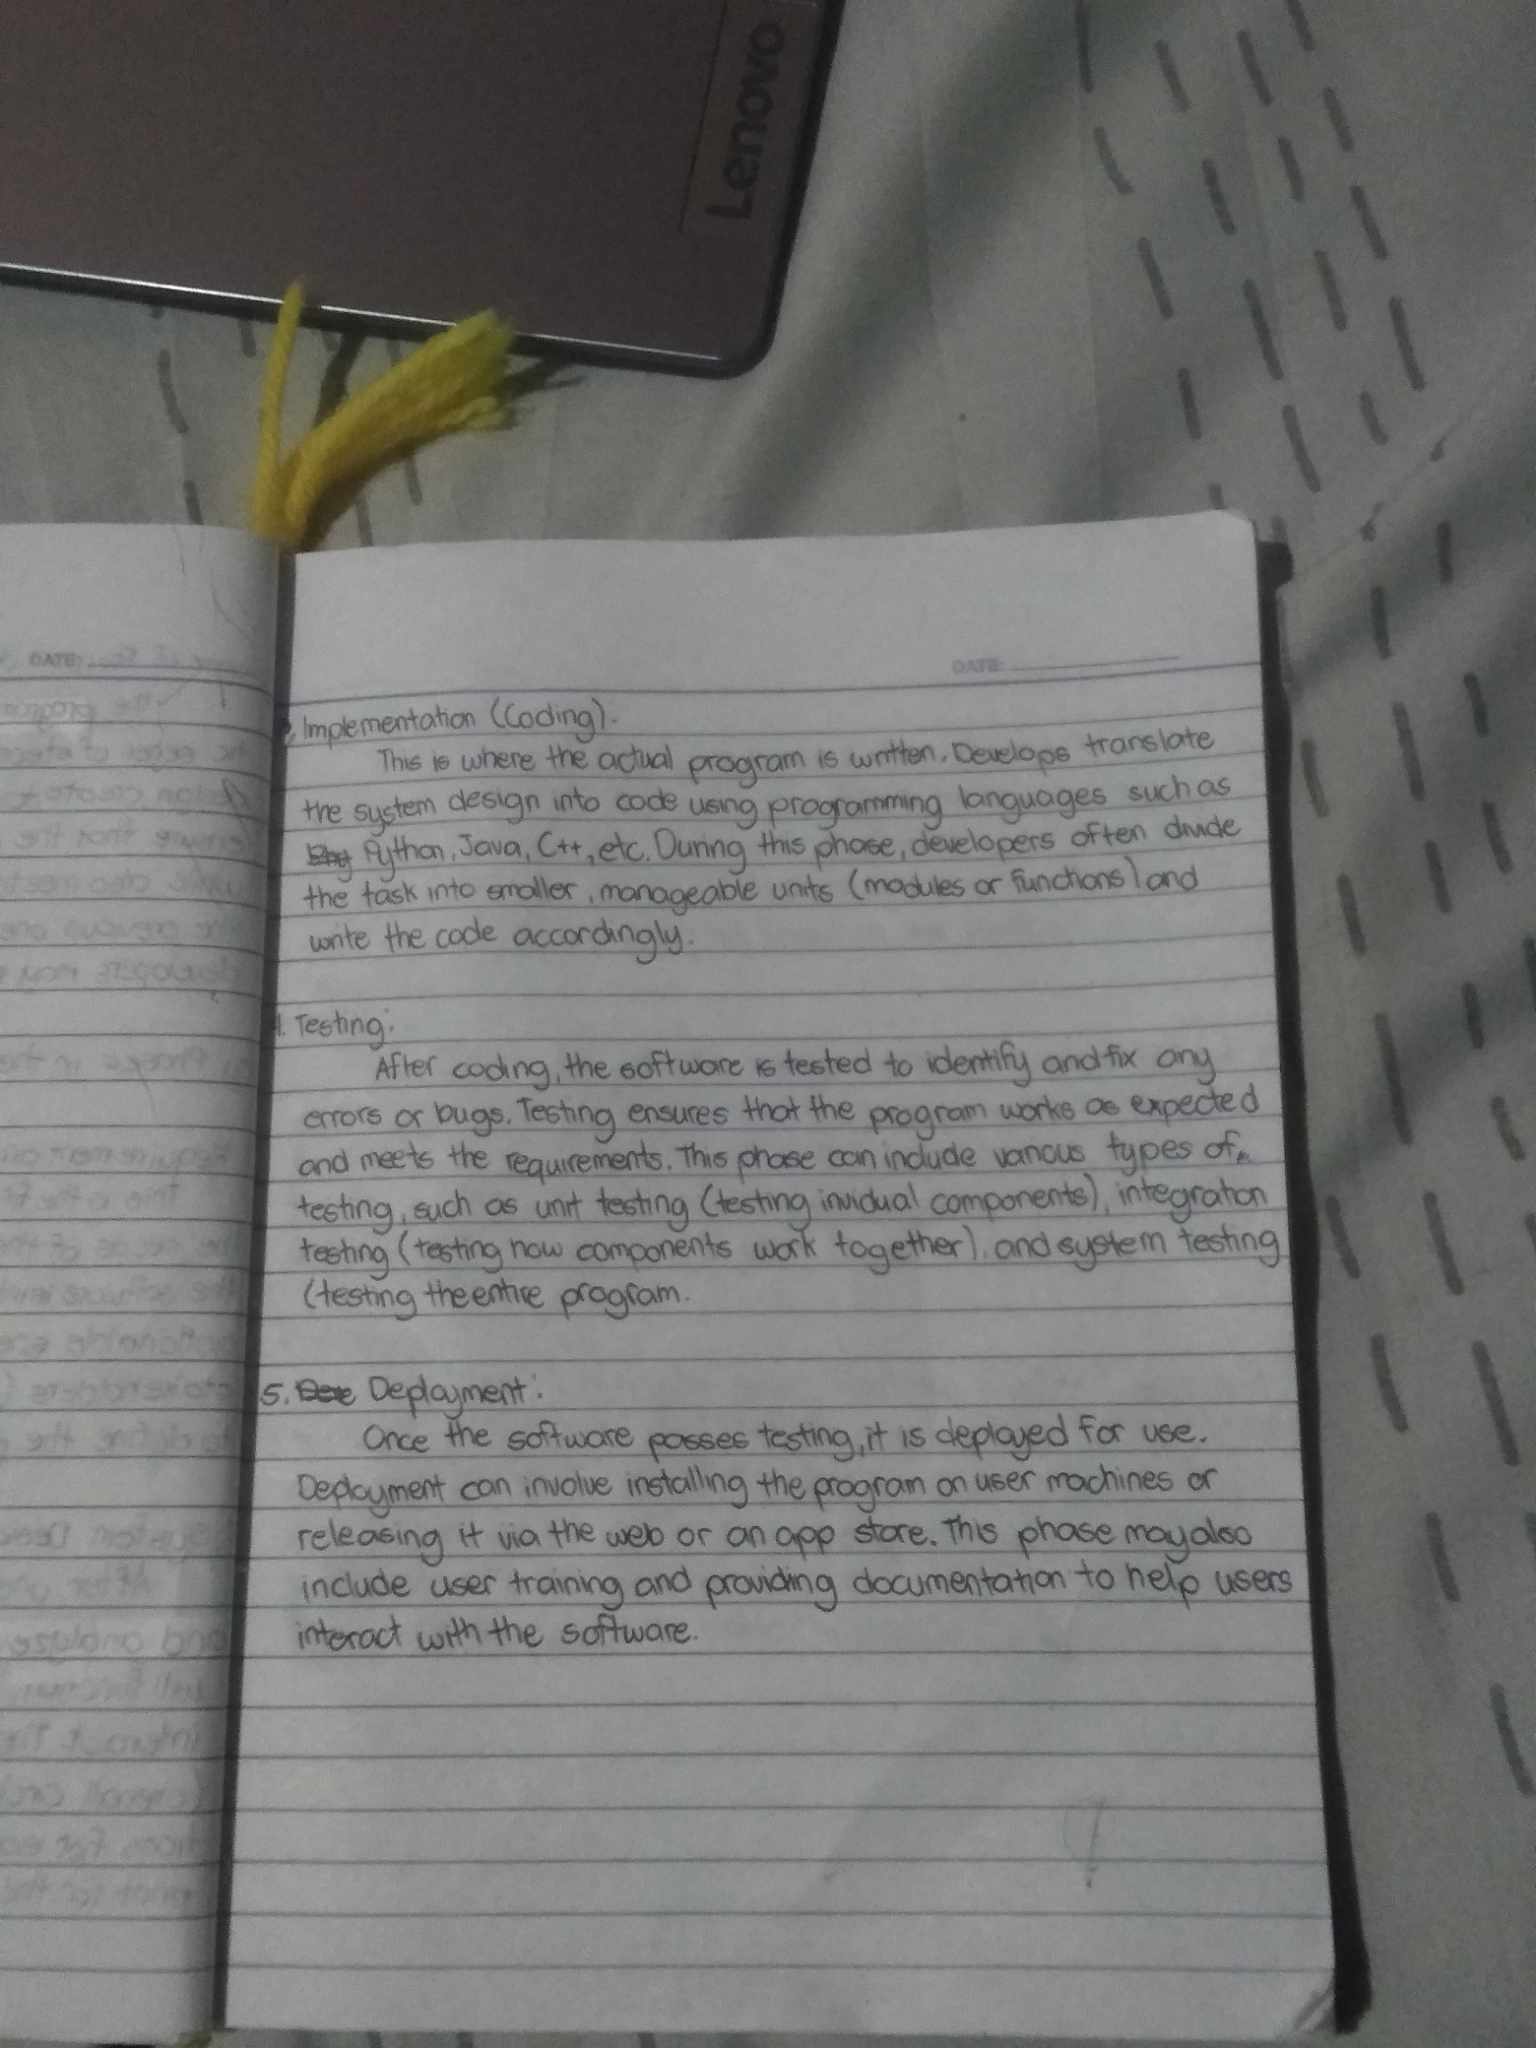 Lenovo
DATE:
DATE:
Implementation (Coding).
This is where the actual program is written. Develops translate
the system design into code using programming languages such as
Python, Java, C++, etc. During this phase, developers often divide
the task into smaller, manageable units (modules or functions) and
write the code accordingly.
4. Testing:
After coding, the software is tested to identify and fix any
errors or bugs. Testing ensures that the program works as expected
and meets the requirements. This phase can include various types of
testing, such as unit testing (testing invidual components), integration
testing (testing how components work together), and system testing
(testing the entire program.
5. Deployment:
Once the software passes testing, it is deployed for use.
Deployment can involve installing the program on user machines or
releasing it via the web or an app store. This phase may also
include user training and providing documentation to help users
interact with the software.